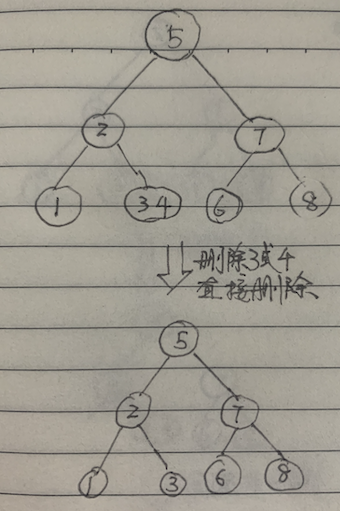 5
2 7
1 34 6 8
删除3或4
直接删除
5
2 7
1 3 6 8